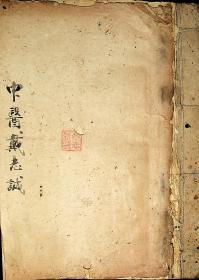 中醫戴志誠